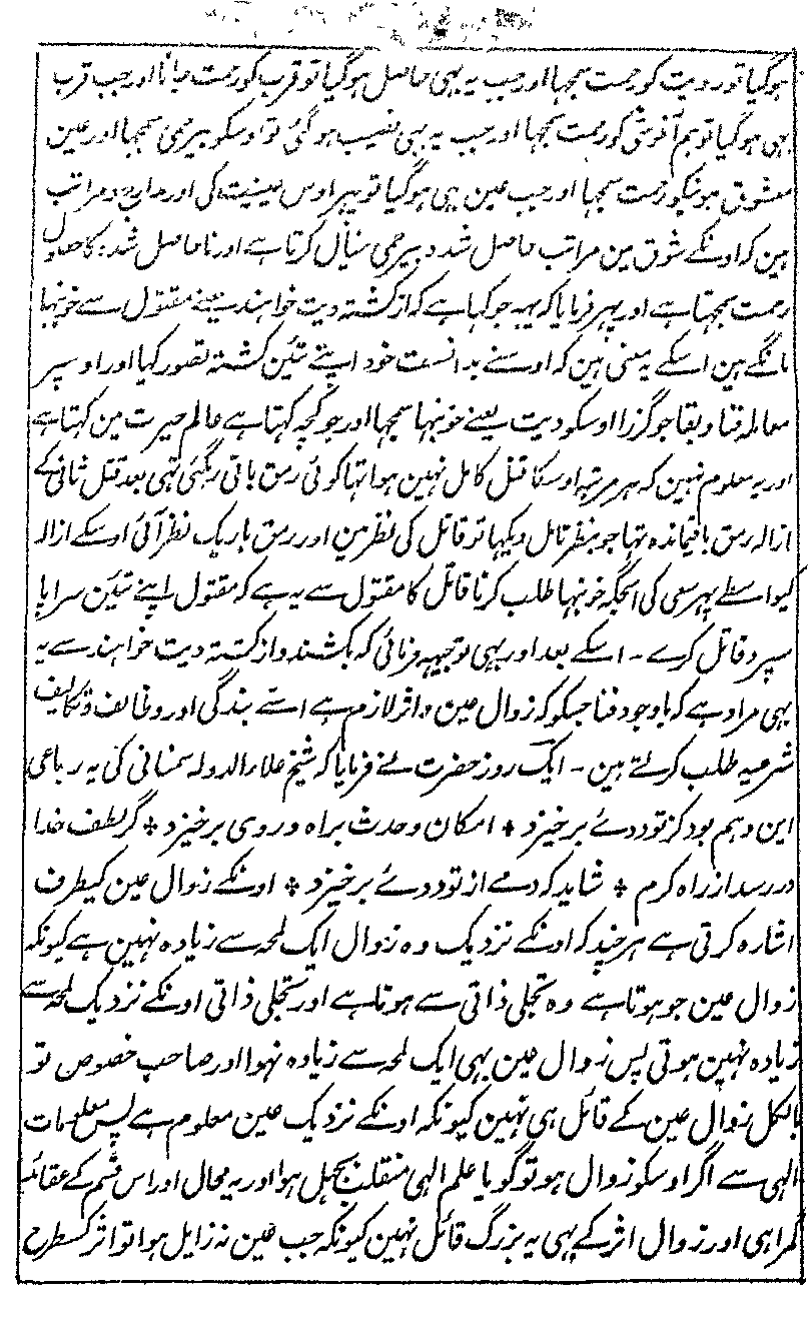 ہوگیا تو رویت کو رحمت سمجہا اور جب یہ بہی حاصل ہوگیا تو قرب کو رحمت جانا اور جب قرب
بہی ہوگیا تو ہم آغوشی کو رحمت سمجہا اور جب یہ بہی نصیب ہوگئی تو اوسکو بیرحمی سمجہا اور عین
معشوق ہونیکو رحمت سمجہا اور جب عین ہی ہوگیا تو پہر اوس عینیت کی اور مدارج و مراتب
ہین کہ اونکے شوق مین مراتب حاصل شدہ بیرحمی خیال کرتا ہے اور نا حاصل شدہ کا حصول
رحمت سمجہتا ہے اور پہر فرمایا کہ یہہ جو کہا ہے کہ از کشتہ دیت خواہند یعنے مقتول سے خونبہا
مانگے ہین اسکے یہ معنی ہین کہ اوسنے بدانست خود اپنے تئین کشتہ تصور کیا اور اوسپر
معاملہ فنا و بقا جو گزرا اوسکو دیت یعنے خونبہا سمجہا اور جو کچہہ کہتا ہے عالم حیرت مین کہتا ہے
اور یہ معلوم نہین کہ ہر مرتبہ اوسکا قتل کامل نہین ہوا تہا کوئی رمق باقی رہگئی تہی بعد قتل ثانی کے
ازالہ رمق باقیماندہ تہا جو بنظر تامل دیکہا تو قاتل کی نظر مین اور رمق باریک نظر آئی اوسکے ازالہ
کیواسطے پہر سعی کی اسجگہ خونبہا طلب کرنا قاتل کا مقتول سے یہ ہے کہ مقتول اپنے تئین سراپا
سپرد قاتل کرے ۔ اسکے بعد اور بہی توجیہہ فرمائی کہ بکشند و از کشتہ دیت خواہند سے یہ
بہی مراد ہے کہ باوجود فنا جسکو کہ زوال عین و اثر لازم ہے اسے بندگی اور وظائف و تکالیف
شرعیہ طلب کرتے ہین ۔ ایک روز حضرت نے فرمایا کہ شیخ علاءالدولہ سمنانی کی یہ رباعی
این وہم بود کز تو دوئے برخیزد ٭ امکان وحدث براہ و روی برخیزد ٭ گر لطف خدا
در رسد از راہ کرم ٭ شاید کہ دمے از تو دوئے برخیزد ٭ اونکے زوال عین کیطرف
اشارہ کرتی ہے ہرچند کہ اونکے نزدیک وہ زوال ایک لمحہ سے زیادہ نہین ہے کیونکہ
زوال عین جو ہوتا ہے وہ تجلی ذاتی سے ہوتا ہے اور تجلی ذاتی اونکے نزدیک لمحہ سے
زیادہ نہین ہوتی پس زوال عین بہی ایک لمحہ سے زیادہ نہوا اور صاحب خصوص تو
بالکل زوال عین کے قائل ہی نہین کیونکہ اونکے نزدیک عین معلوم ہے پس معلومات
الہی سے اگر اوسکو زوال ہو تو گویا علم الہی منقلب بجہل ہوا اور یہ محال اور اس قسم کے عقائد
گمراہی اور زوال اثر کے بہی یہ بزرگ قائل نہین کیونکہ جب عین نہ زایل ہوا تو اثر کسطرح